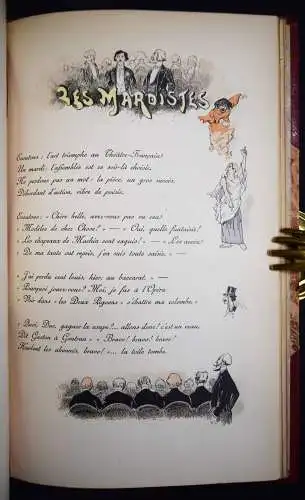 LES MARDISTES
Ecoutons : l'art triomphe au Théâtre-Français!
Un mardi; l'assemblée est ce soir-là choisie.
Ne perdons pas un mot : la pièce, un gros succès,
Débordant d'action, vibre de poésie.
Ecoutons. « Chère belle, avez-vous pas vu ces
« Modèles de chez Chose? » — « Oui, quelle fantaisie!
« Les chapeaux de Machin sont exquis! » — « Les
« De ma tante est repris, j'en suis toute saisie. » —
« J'ai perdu cent louis, hier, au baccarat. » —
« Pourquoi jouez-vous? » « Moi, je fus à l'Opéra
« Voir dans « les Deux Pigeons » s'ébattre ma colombe. »
« Quoi, Duc, gagner la coupe!... allons donc! c'est un veau,
Dit Gaston à Gontran « « Bravo! bravo! bravo!
Hurlent les abonnés, bravo! »... la toile tombe.